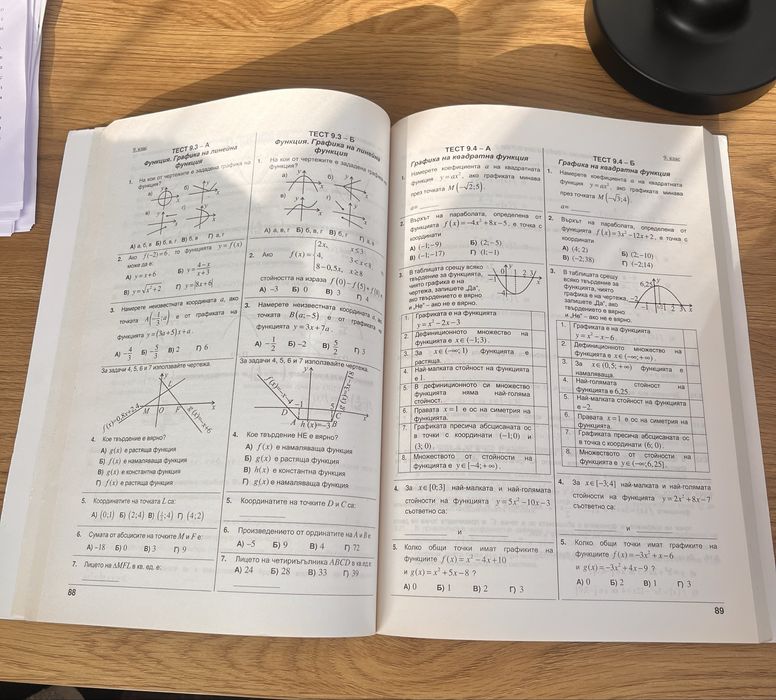 9. клас
ТЕСТ 9.3 – А
Функция. Графика на линейна
функция
1. На кои от чертежите е зададена графика на
функция?
а) б)
в) г)
А) а, б, в Б) б, в, г В) б, в Г) а, г
2. Ако f(−2)=6, то функцията y=f(x)
може да е:
А) y=x+6 Б) y=(4−x)/(x+3)
В) y=√x²+2 Г) y=|8x+6|
3. Намерете неизвестната координата a, ако
точката A(−1/3; a) е от графиката на
функцията y=(3a+5)x+a.
А) −4/3 Б) −5/3 В) 2 Г) 6
За задачи 4, 5, 6 и 7 използвайте чертежа.
y
L
f(x)=0,8x+2,4
M O F x
g(x)=−x+6
4. Кое твърдение е вярно?
А) g(x) е растяща функция
Б) f(x) е намаляваща функция
В) g(x) е константна функция
Г) f(x) е растяща функция
5. Координатите на точката L са:
А) (0;1) Б) (2;4) Г) (4;2)
6. Сумата от абсцисите на точките M и F е:
А) −18 Б) 0 В) 3 Г) 9
7. Лицето на ΔMFL в кв. ед. е:
88
ТЕСТ 9.3 – Б
Функция. Графика на линейна
функция
1. На кои от чертежите е зададена графика на
функция?
а) б)
в) г)
А) а, в, г Б) б, в, г В) б, г Г) а, в
2. Ако f(x)= {2x, x≤3
4, 3<x<8
8−0,5x, x≥8
стойността на израза f(0)−f(5)+f(8)
А) −3 Б) 0 В) 3 Г) 4
3. Намерете неизвестната координата a, ако
точката B(a;−5) е от графиката на
функцията y=3x+7a.
А) −1/2 Б) −2 В) 5/2 Г) 3
За задачи 4, 5, 6 и 7 използвайте чертежа.
y
f(x)=−x−4
D C
A B
h(x)=−3
4. Кое твърдение НЕ е вярно?
А) f(x) е намаляваща функция
Б) g(x) е растяща функция
В) h(x) е константна функция
Г) g(x) е намаляваща функция
5. Координатите на точките D и C са:
6. Произведението от ординатите на A и B е
А) −5 Б) 9 В) 4 Г) 72
7. Лицето на четириъгълника ABCD в кв.ед. е:
А) 24 Б) 28 В) 33 Г) 39
ТЕСТ 9.4 – А
Графика на квадратна функция
1. Намерете коефициента a на квадратната
функция y=ax², ако графиката минава
през точката M(−√2;5).
a=
2. Върхът на параболата, определена от
функцията f(x)=−4x²+8x−5, е точка с
координати
А) (−1;−9) Б) (2;−5)
В) (−1;−17) Г) (1;−1)
3. В таблицата срещу всяко
твърдение за функцията,
чиято графика е на
чертежа, запишете „Да“,
ако твърдението е вярно
и „Не“ – ако не е вярно.
1. Графиката е на функцията
y=x²−2x−3
2. Дефиниционното множество на
функцията е x∈(−1;3).
3. За x∈(−∞;1) функцията е
растяща.
4. Най-малката стойност на функцията
е 1.
5. В дефиниционното си множество
функцията няма най-голяма
стойност.
6. Правата x=1 е ос на симетрия на
функцията.
7. Графиката пресича абсцисната ос
в точки с координати (−1;0) и
(3;0).
8. Множеството от стойности на
функцията е y∈[−4;+∞).
4. За x∈[0;3] най-малката и най-голямата
стойности на функцията y=5x²−10x−3
съответно са:
и
5. Колко общи точки имат графиките на
функциите f(x)=x²−4x+10
и g(x)=x²+5x−8 ?
А) 0 Б) 1 В) 2 Г) 3
9. клас
ТЕСТ 9.4 – Б
Графика на квадратна функция
1. Намерете коефициента a на квадратната
функция y=ax², ако графиката минава
през точката M(−√3;4).
a=
2. Върхът на параболата, определена от
функцията f(x)=3x²−12x+2, е точка с
координати
А) (4;2) Б) (2;−10)
В) (−2;38) Г) (−2;14)
3. В таблицата срещу
всяко твърдение за
функцията, чиято
графика е на чертежа,
запишете „Да“, ако
твърдението е вярно
и „Не“ – ако не е вярно.
1. Графиката е на функцията
y=x²−x−6.
2. Дефиниционното множество на
функцията е x∈(−∞;+∞).
3. За x∈(0,5;+∞) функцията е
намаляваща.
4. Най-голямата стойност на
функцията е 6,25.
5. Най-малката стойност на функцията
е −2.
6. Правата x=1 е ос на симетрия на
функцията.
7. Графиката пресича абсцисната ос
в точка с координати (6;0).
8. Множеството от стойности на
функцията е y∈(−∞;6,25].
4. За x∈[−3;4] най-малката и най-голямата
стойности на функцията y=2x²+8x−7
съответно са:
и
5. Колко общи точки имат графиките на
функциите f(x)=−3x²+x−6
и g(x)=−3x²+4x−9 ?
А) 0 Б) 2 В) 1 Г) 3
89